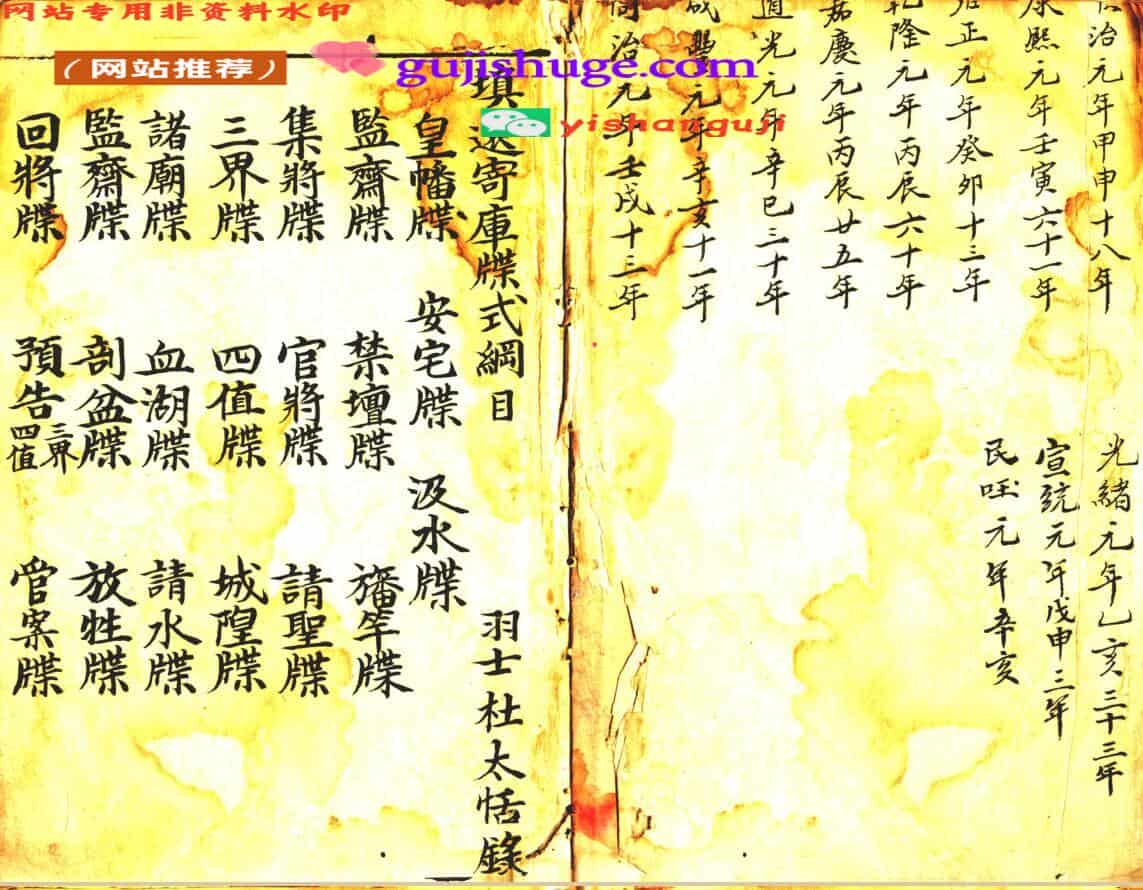 网站专用非资料水印
(网站推荐)
gujishuge.com
yishanguji
治元年甲申十八年
康熙元年壬寅六十一年
正元年癸卯十三年
乾隆元年丙辰六十年
嘉慶元年丙辰廿五年
道光元年辛巳三十年
咸豐元年辛亥十一年
同治元年壬戌十三年
光緒元年乙亥三十三年
宣統元年戊申三年
民 元年辛亥
填还寄庫牒式綱目 羽士杜太恬錄
皇幡牒 安宅牒 汲水牒
監齋牒 禁壇牒 旛竿牒
集將牒 官將牒 請聖牒
三界牒 四值牒 城隍牒
諸廟牒 血湖牒 請水牒
監齋牒 剖盆牒 放牲牒
回將牒 預告三界四值 管案牒